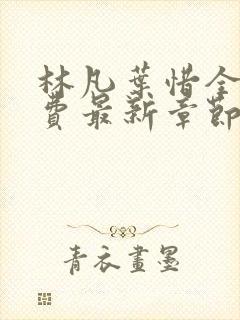 林凡葉惜全
費最新章節
青衣畫墨